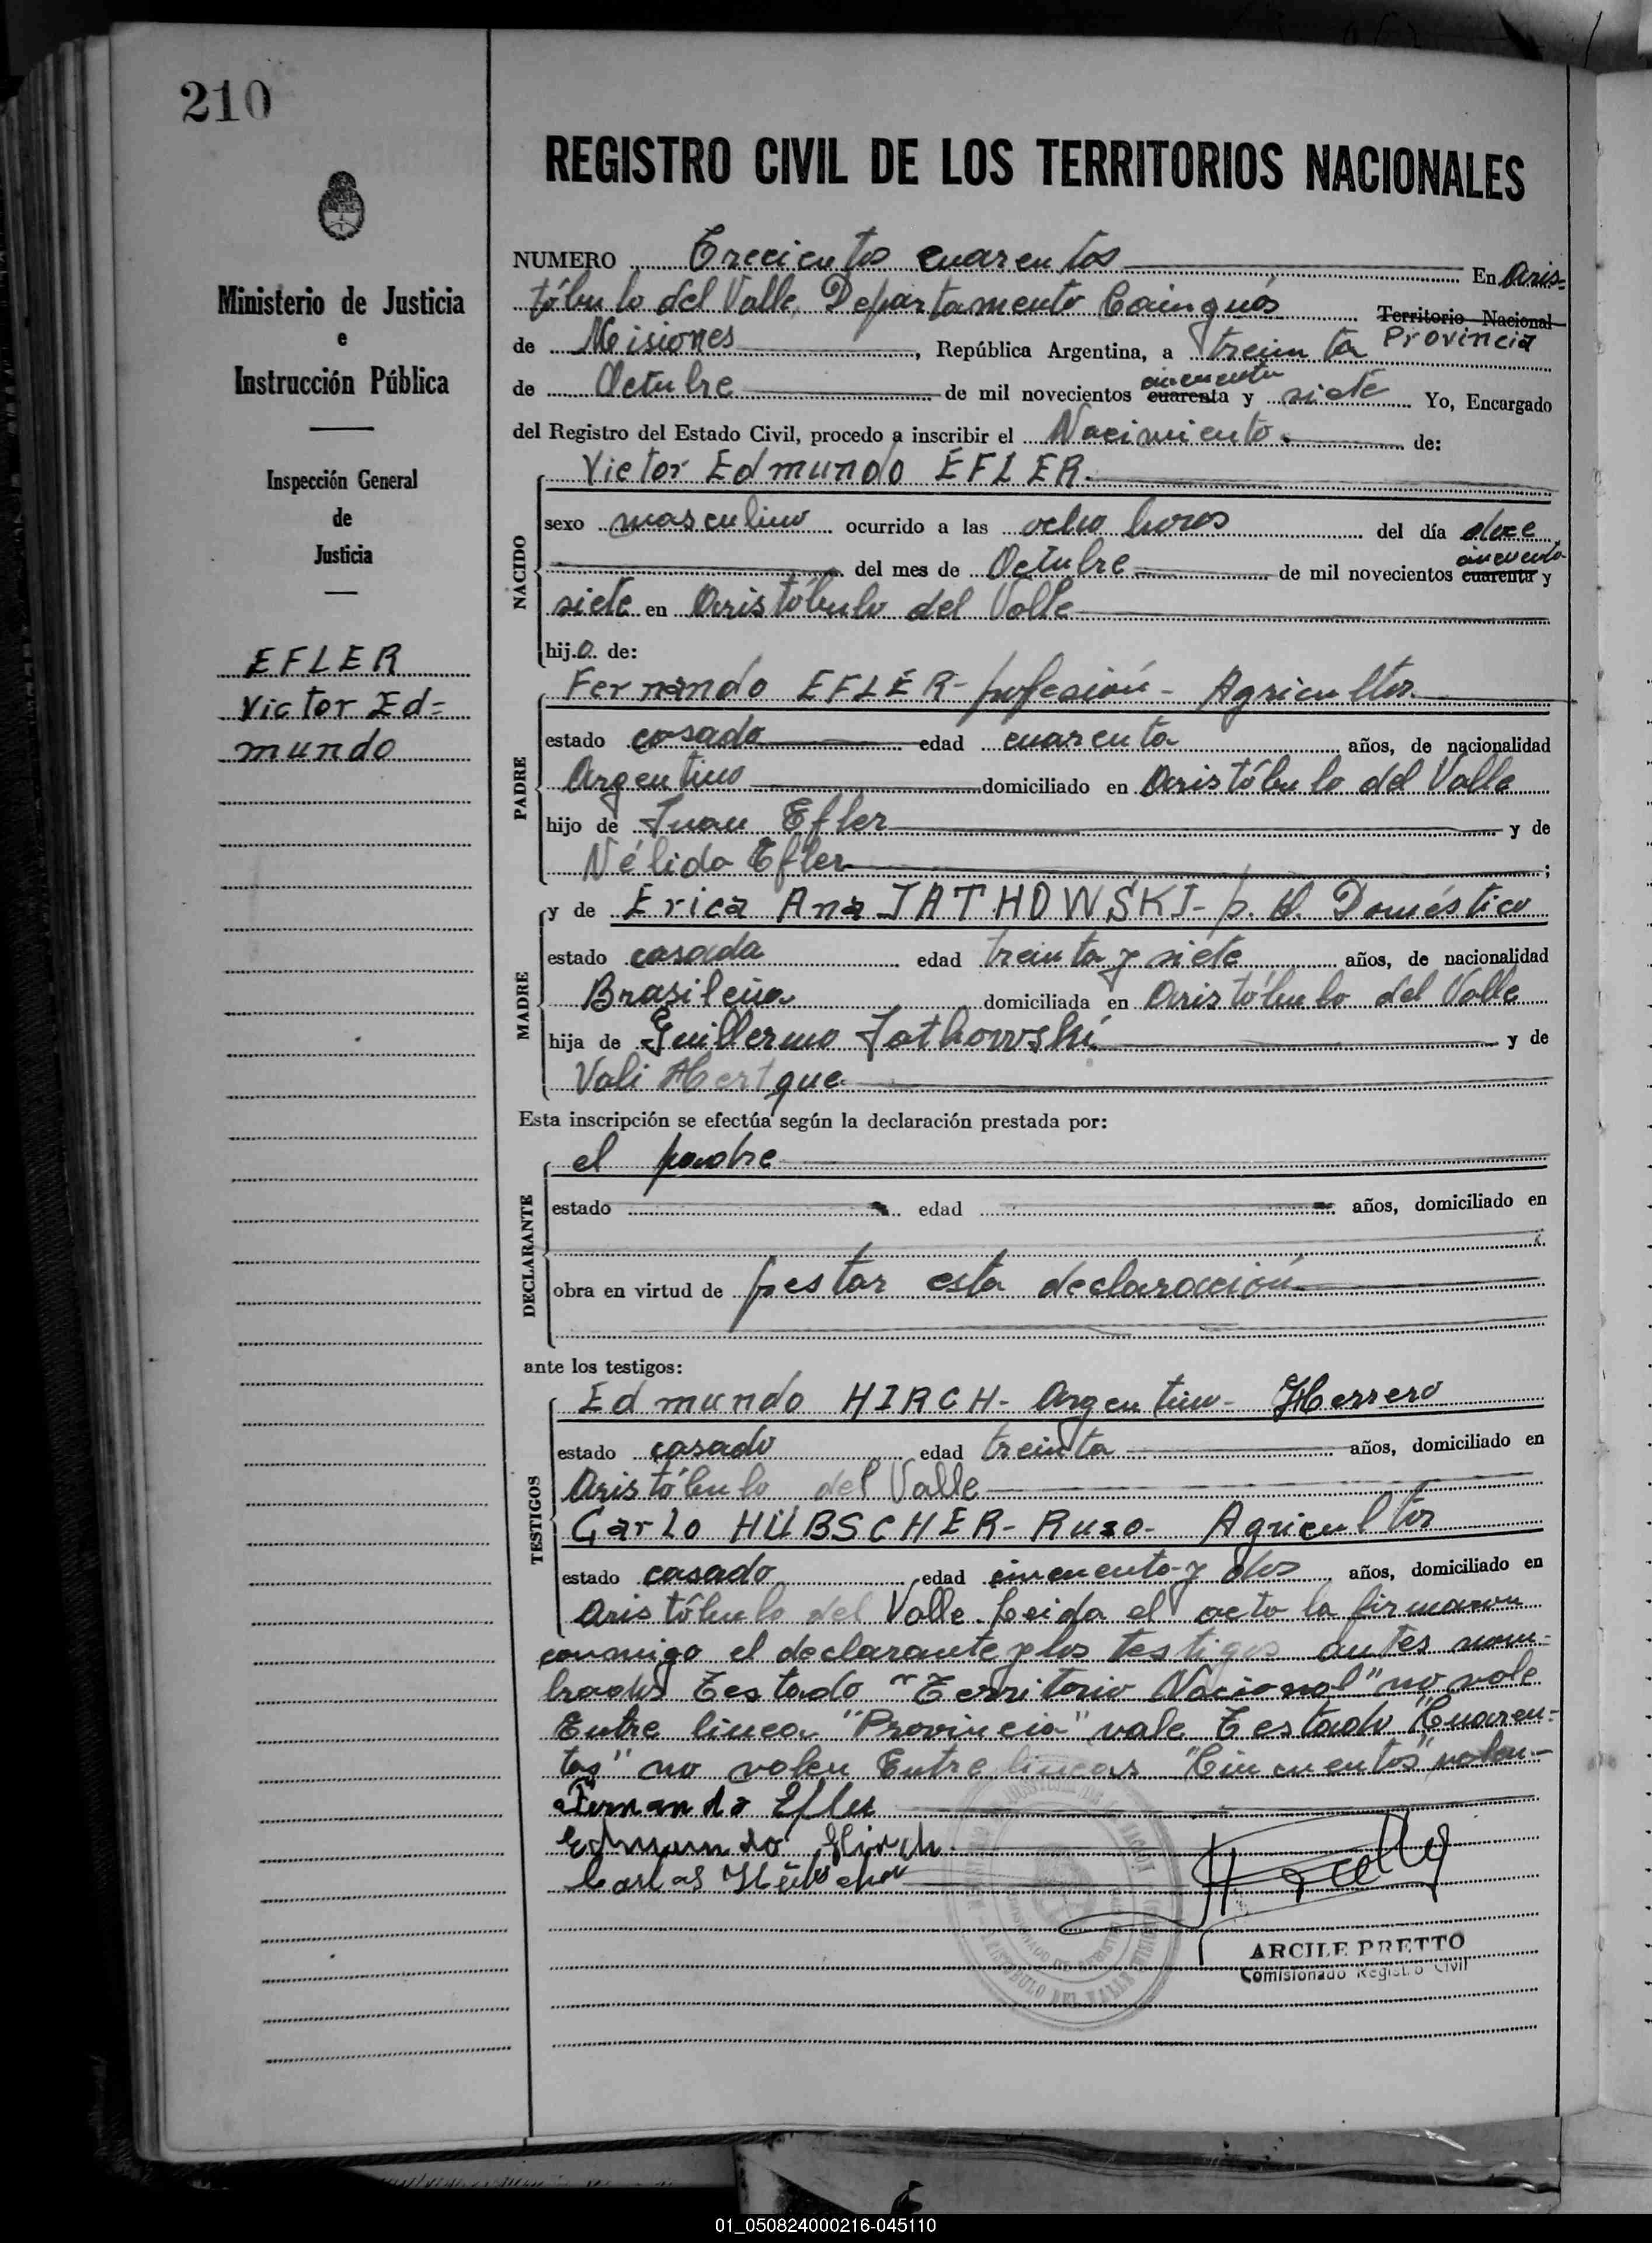 210
REGISTRO CIVIL DE LOS TERRITORIOS NACIONALES
Ministerio de Justicia
e
Instrucción Pública
Inspección General
de
Justicia
EFLER
Victor Ed=
mundo
NUMERO Trecientos cuarentos En Aris=
tóbulo del Valle, Departamento Cainguás Territorio Nacional
Provincia
de Misiones, República Argentina, a treinta
de Octubre de mil novecientos cuarenta y siete Yo, Encargado
cincuenta
del Registro del Estado Civil, procedo a inscribir el Nacimiento de:
NACIDO
Victor Edmundo EFLER.
sexo masculino ocurrido a las ocho horas del día doce
del mes de Octubre de mil novecientos cuarenta y
cincuenta
siete en Aristóbulo del Valle
hij.o. de:
PADRE
Fernando EFLER - profesión - Agricultor
estado casado edad cuarenta años, de nacionalidad
Argentino domiciliado en Aristóbulo del Valle
hijo de Juan Efler y de
Nélida Efler;
MADRE
y de Erica Ana JATHOWSKI - p. Q. Doméstico
estado casada edad treinta y siete años, de nacionalidad
Brasileña domiciliada en Aristóbulo del Valle
hija de Guillermo Jathowski y de
Vali
Esta inscripción se efectúa según la declaración prestada por:
DECLARANTE
el padre
estado edad años, domiciliado en
obra en virtud de pestar esta declaración
ante los testigos:
TESTIGOS
Edmundo HIRCH - Argentino - Herrero
estado casado edad treinta años, domiciliado en
Aristóbulo del Valle
Carlo HÜBSCHER - Ruso - Agricultor
estado casado edad cincuenta y dos años, domiciliado en
Aristóbulo del Valle. Leida el acto la firmaron
conmigo el declarante y los testigos antes nom=
brados Testado "Territorio Nacional" no vale
Entre linea "Provincia" vale Testado "Cuaren=
tas" no valen Entre lineas "Cincuentos" valen.-
Fernando Efler
Edmundo Hirch.
Carlos Hübscher
ARCILE PRETTO
Comisionado Registro Civil
01_050824000216-045110